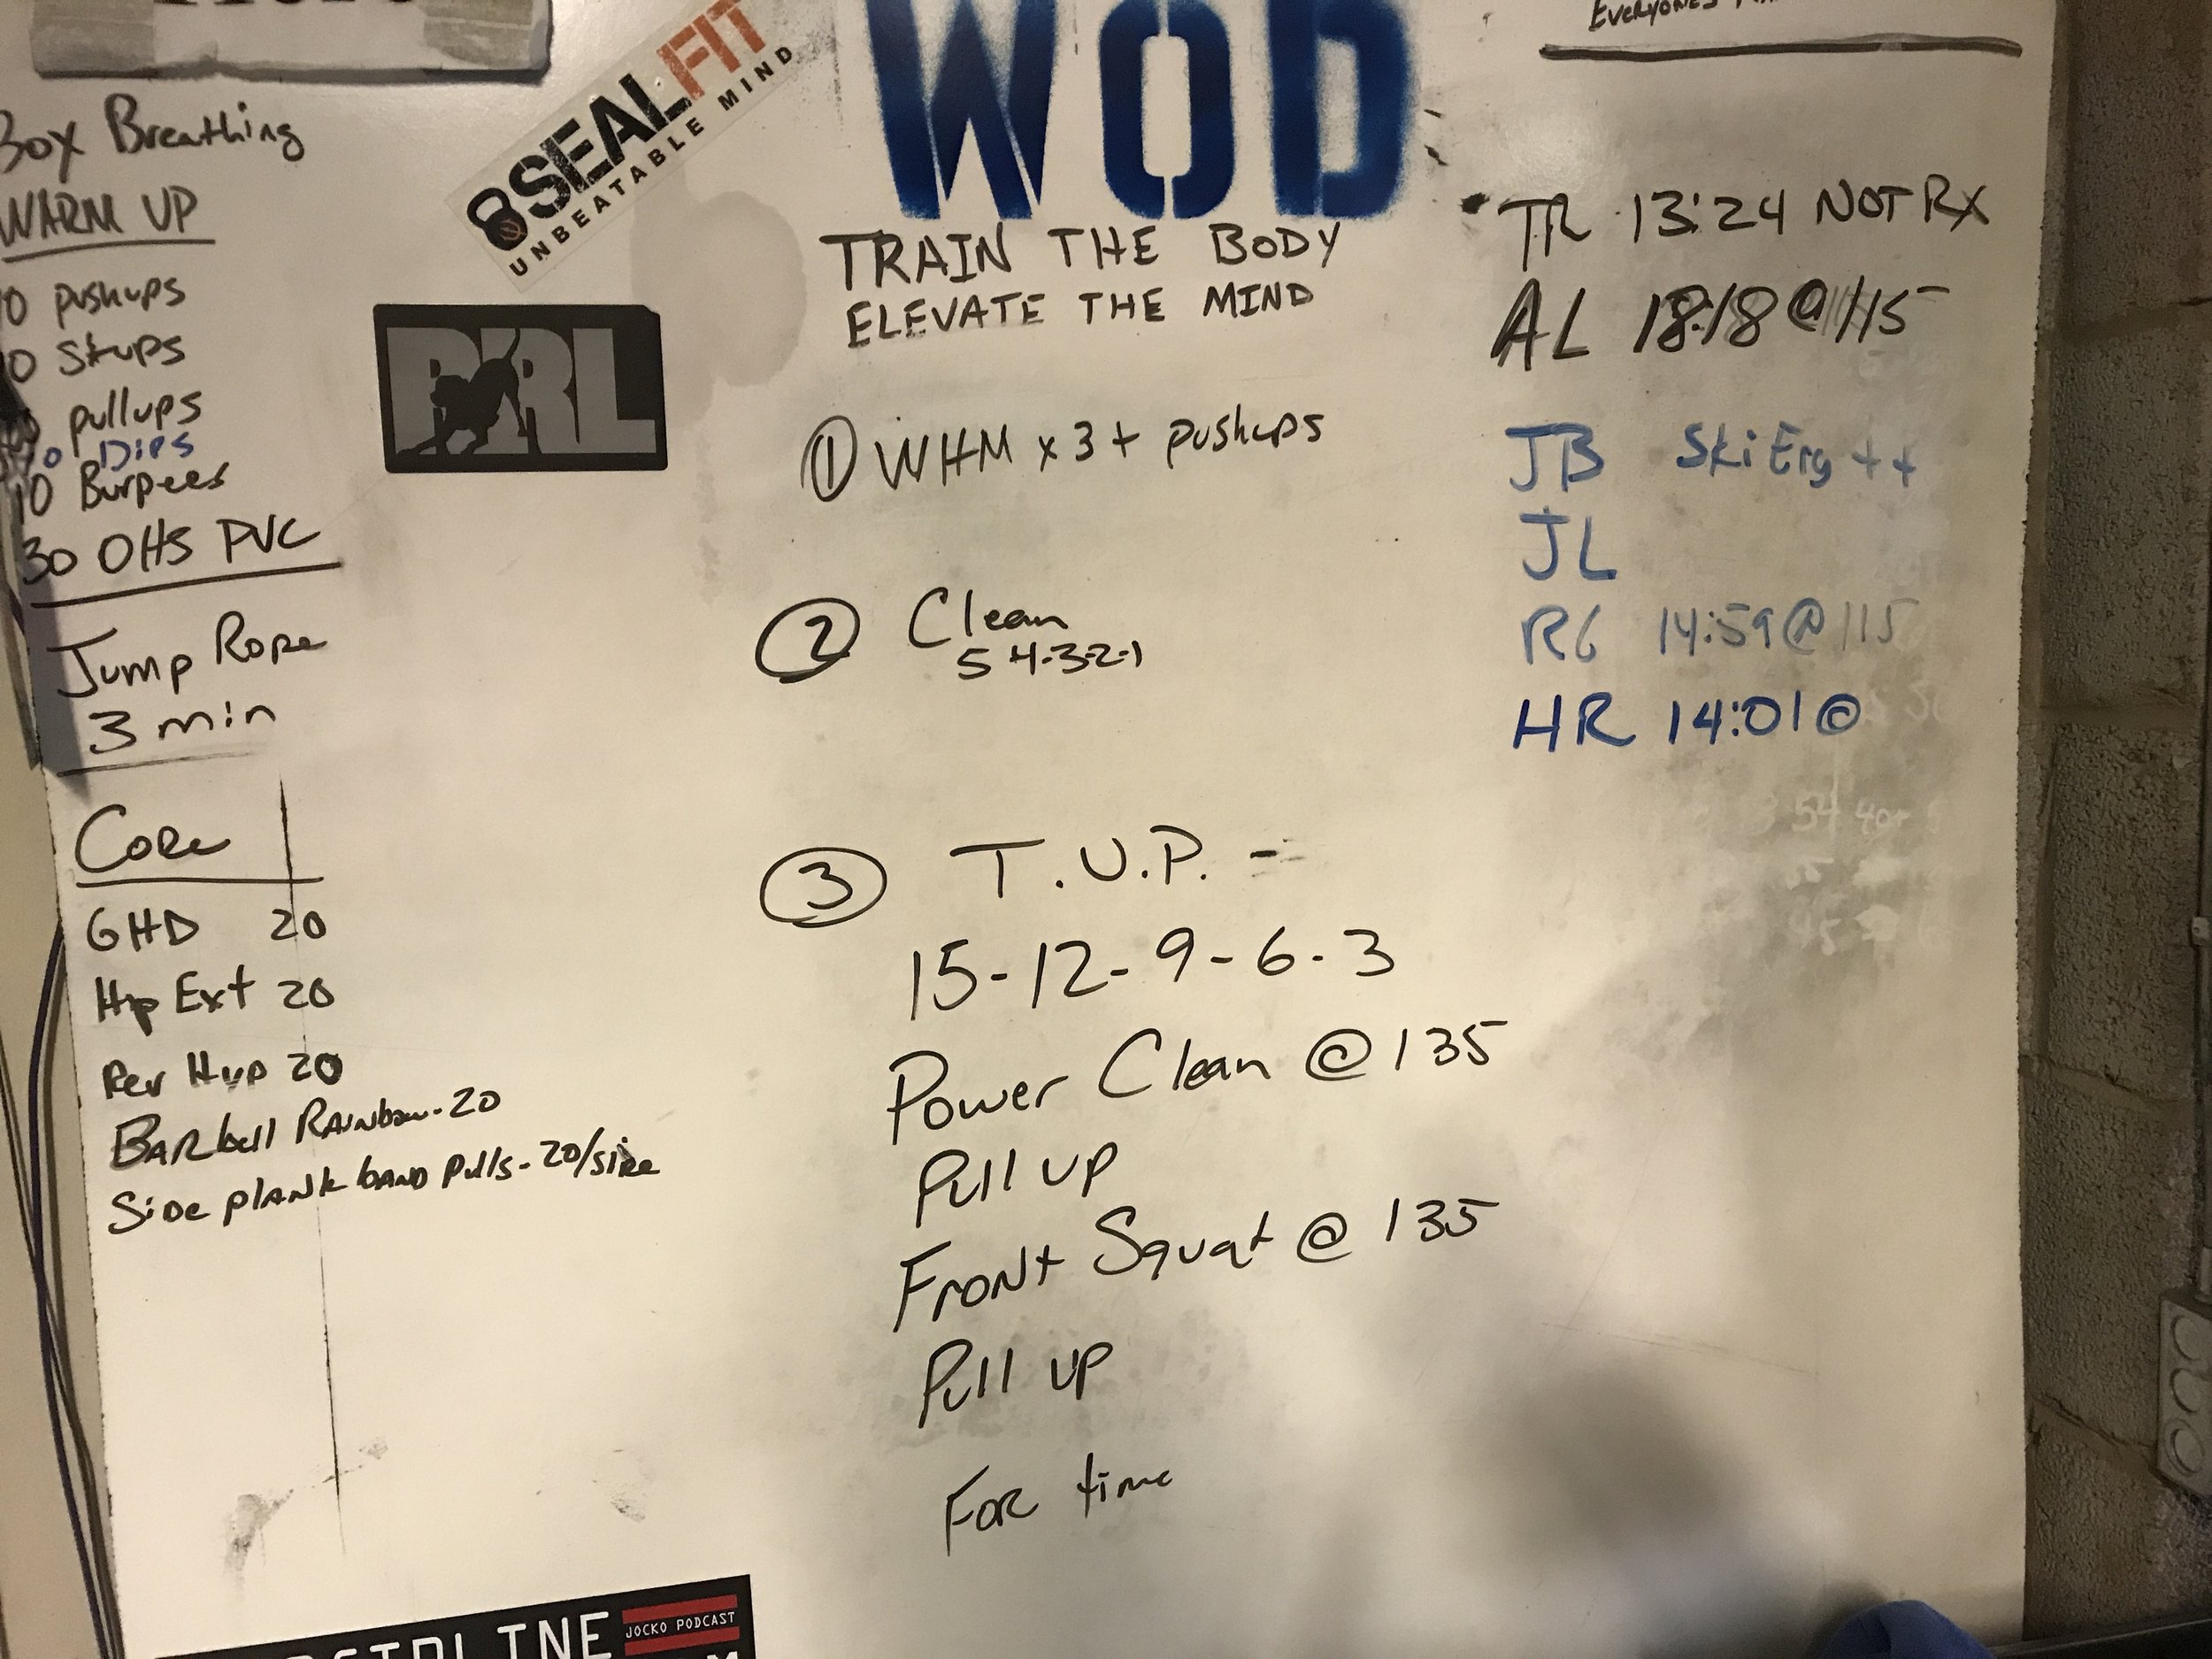 Box Breathing
WARM UP
0 pushups
0 Situps
pullups
Dips
10 Burpees
30 OHS PVC
Jump Rope
3 min
Core
GHD 20
Hip Ext 20
Rev Hyp 20
BARbell RAINbow - 20
SiDe plANk bAND pulls - 20/side
SEALFIT
UNBEATABLE MIND
WOD
TRAIN THE BODY
ELEVATE THE MIND
① WHM x 3 + pushups
② Clean
5 4-3-2-1
③ T.U.P. -
15-12-9-6-3
Power Clean @ 135
Pull up
Front Squat @ 135
Pull up
For time
EVERYONES
TR 13:24 NOT RX
AL 18:18 @ 115
JB Ski Erg ++
JL
RG 14:59 @ 115
HR 14:01 @
JOCKO PODCAST